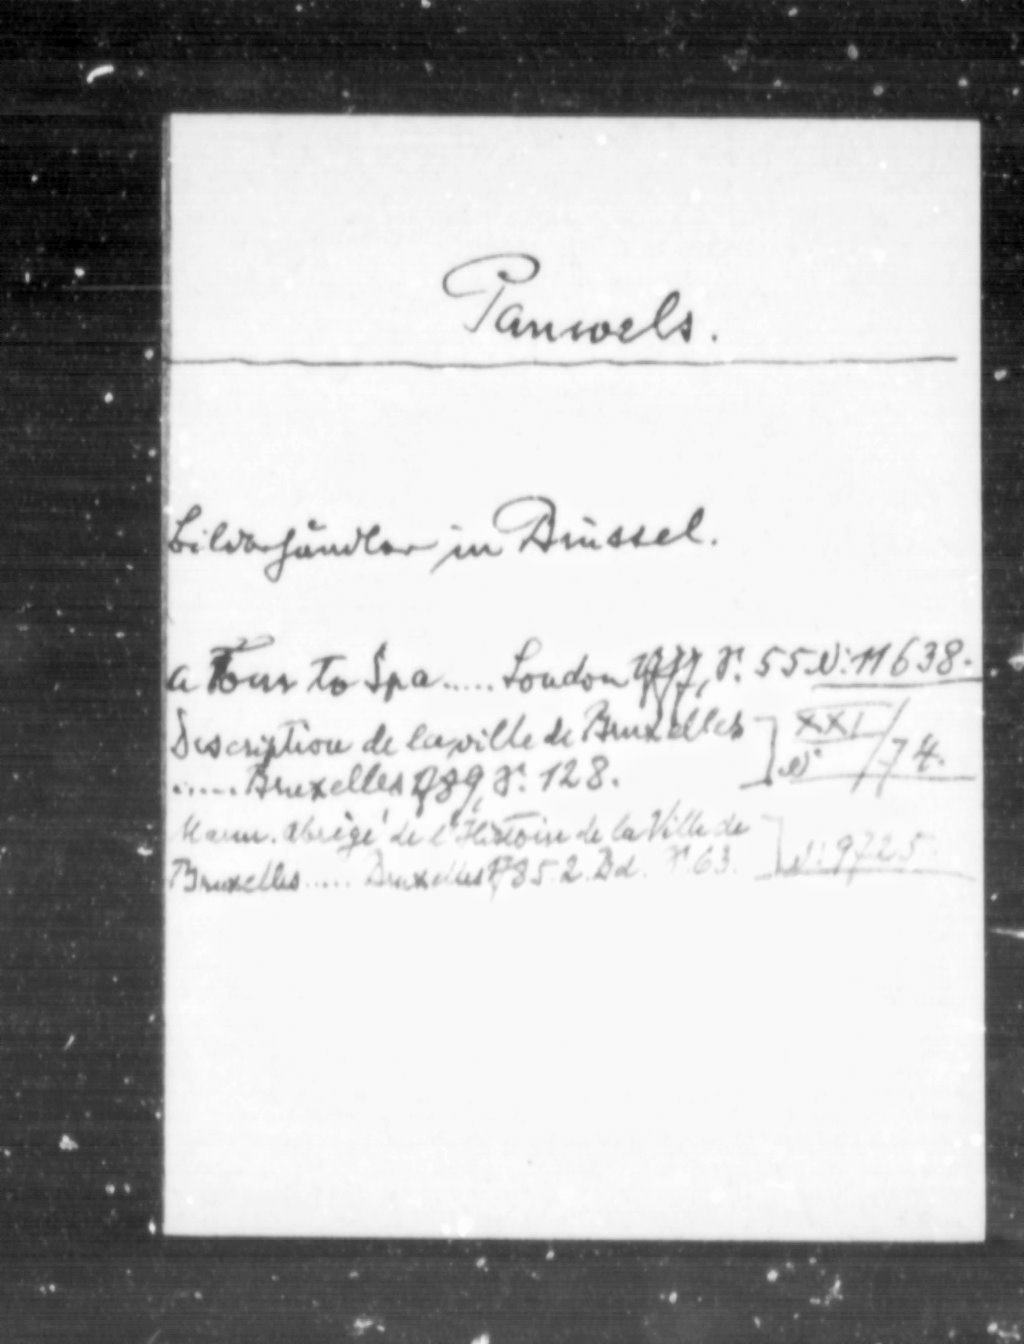 Pauwels.
Bilderhändler in Brüssel.
a Tour to Spa ..... London S. 55. N: 11638.
Description de la ville de Bruxelles ] XXI / 74.
...... Bruxelles S. 128. N°
Mann. Abrégé de l'Histoire de la Ville de
Bruxelles ..... Bruxelles 1785. 2. Bd. S. 63. ] N: 9725.